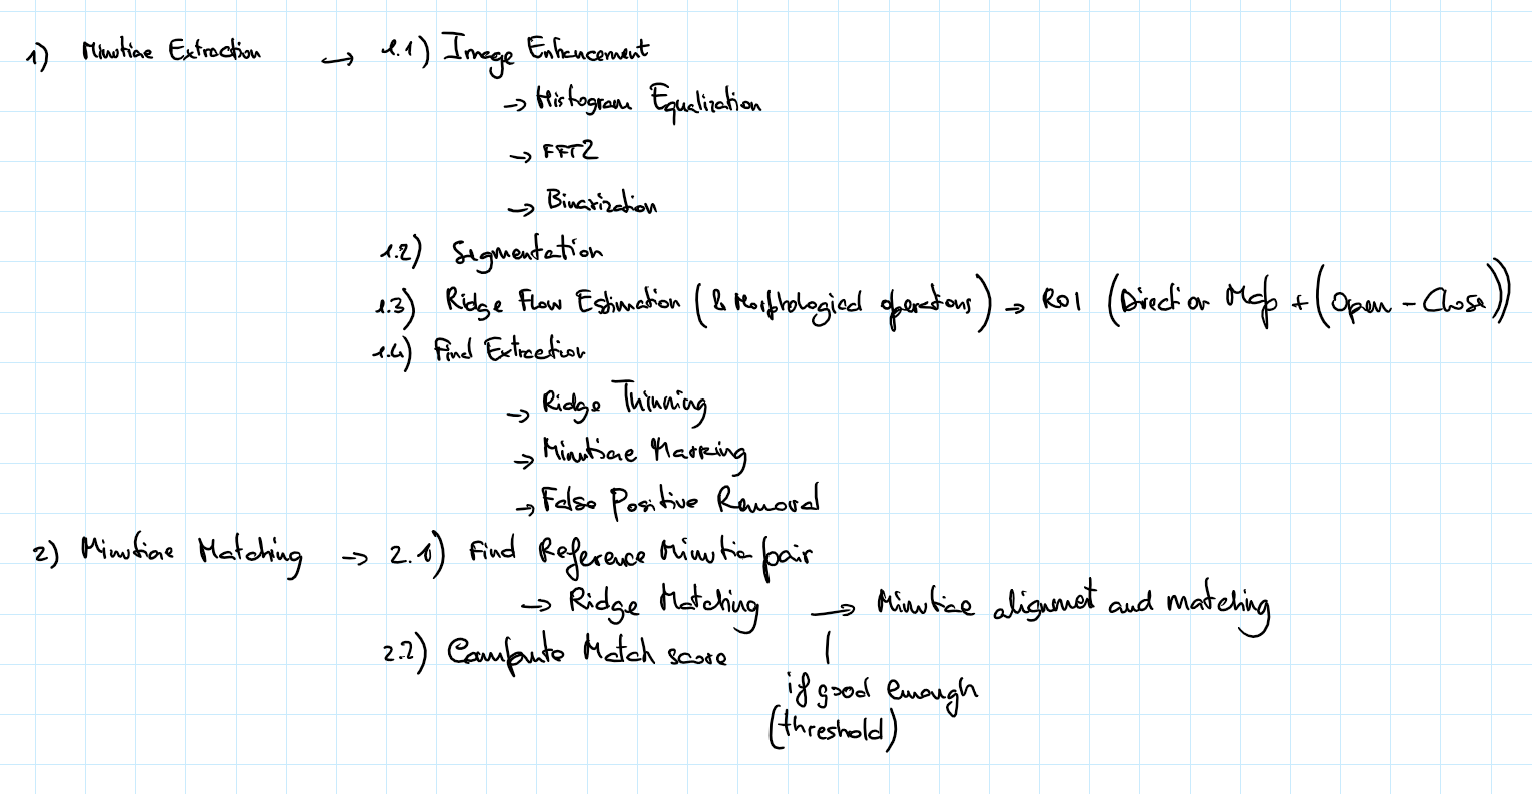 1) Minutiae Extraction → 1.1) Image Enhancement
→ Histogram Equalization
→ FFT2
→ Binarization
1.2) Segmentation
1.3) Ridge Flow Estimation (& Morphological operations) → ROI (Direction Map + (Open - Close))
1.4) Find Extraction
→ Ridge Thinning
→ Minutiae Marking
→ False Positive Removal
2) Minutiae Matching → 2.1) Find Reference Minutia pair
→ Ridge Matching → Minutiae alignmet and matching
2.2) Compute Match score
if good enough
(threshold)